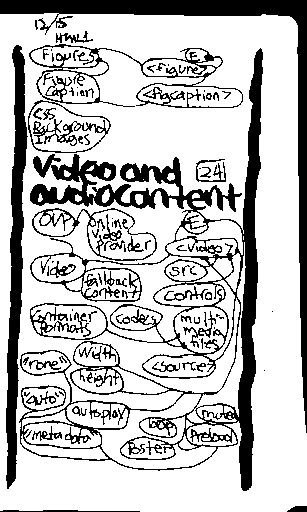 12/15
HTML1
Figures E
<figure>
Figure
Caption <figcaption>
CSS
Background
Images
Video and 24
audio content
OVP online E
video
provider <video>
Video src
fallback
content controls
Container codecs multi-
formats media
files
"none" width <source>
height
"auto" autoplay loop muted
"metadata" Poster Preload